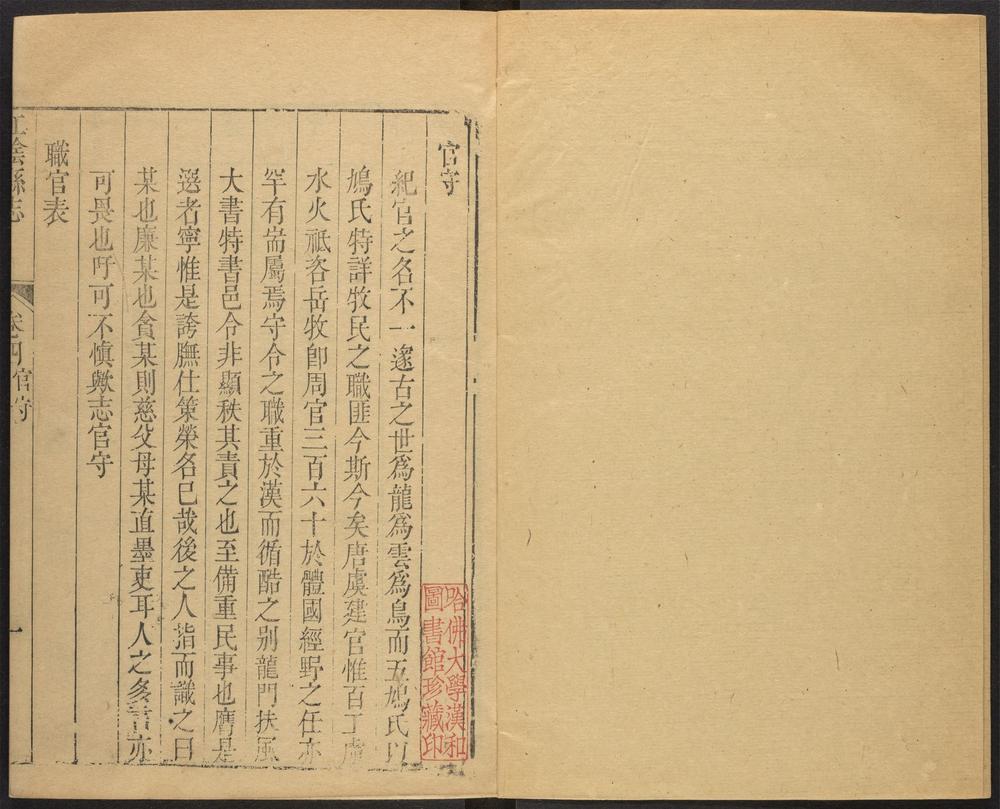 官守
紀官之名不一邃古之世爲龍爲雲爲鳥而五鳩氏以
鳩氏特詳牧民之職匪今斯今矣唐虞建官惟百工虞
水火祗咨岳牧卽周官三百六十於體國經野之任亦
罕有耑屬焉守令之職重於漢而循酷之别龍門扶風
大書特書邑令非顯秩其責之也至備重民事也膺是
選者寧惟是誇膴仕策榮名已哉後之人指而識之曰
某也廉某也貪某則慈父母某直墨吏耳人之多言亦
可畏也吁可不慎歟志官守
職官表
江陰縣志
卷四官守
一
哈佛大學漢和
圖書館珍藏印